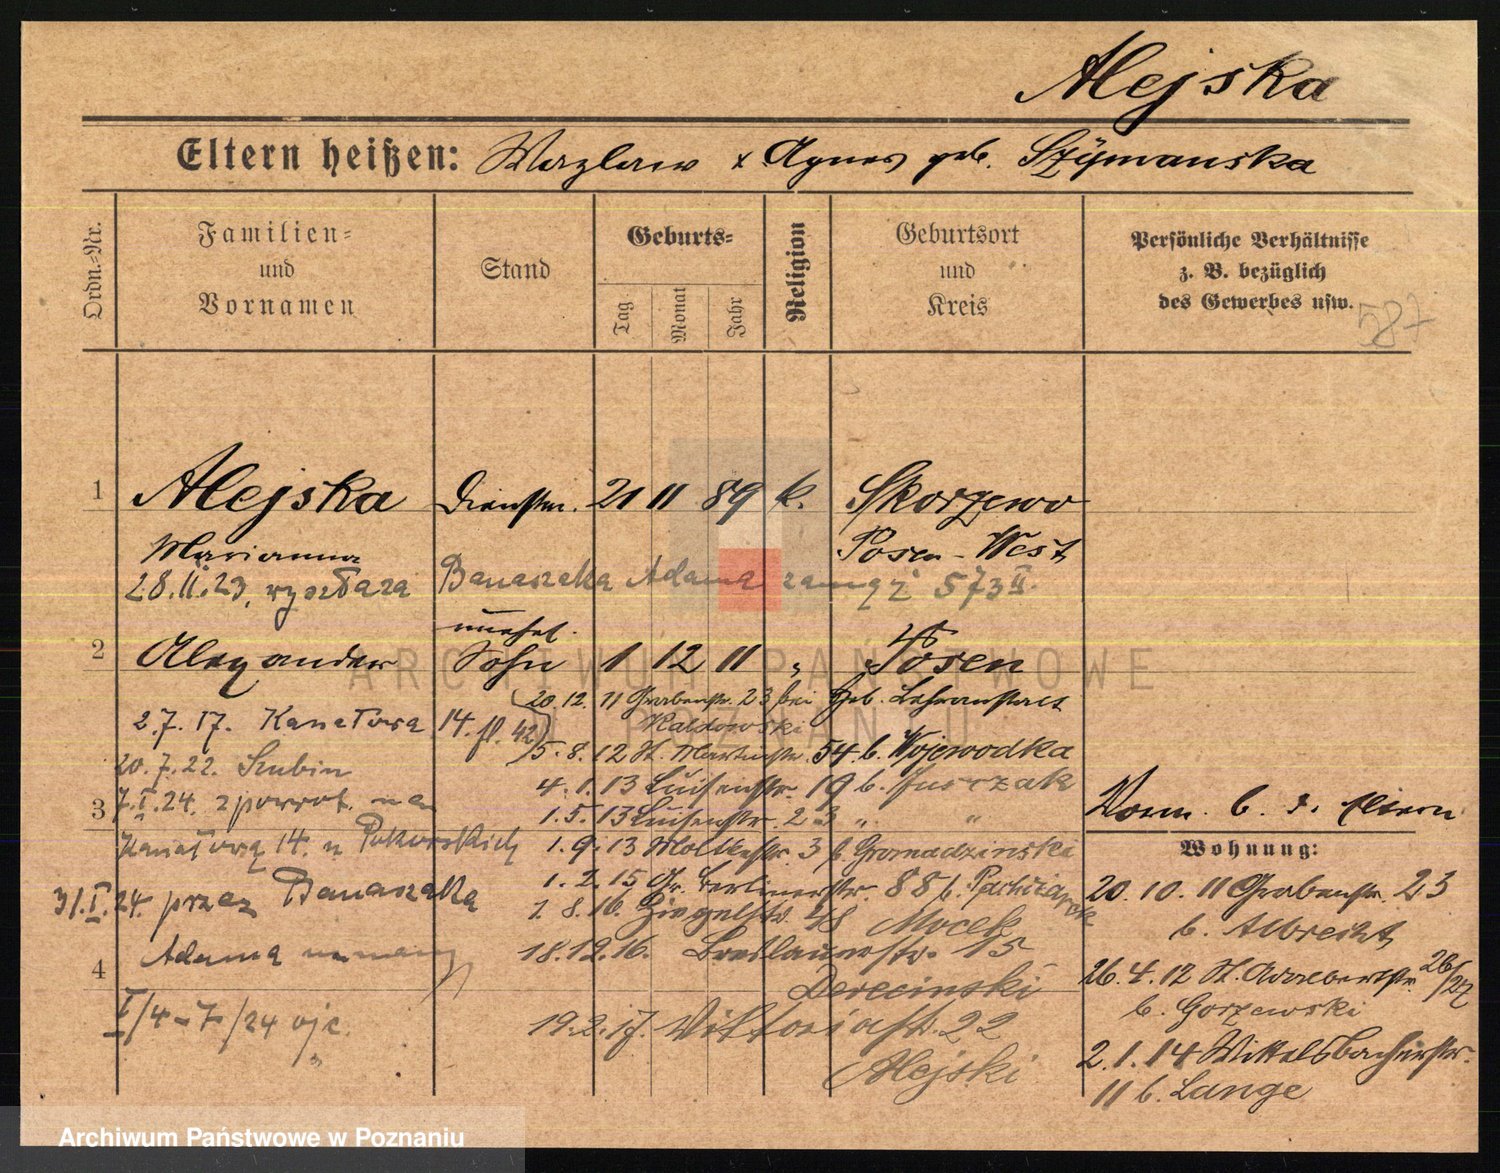 Alejska
Eltern heißen: Wazlaw x Agnes geb. Szymanska
Ordn.-Nr.
Familien-
und
Vornamen
Stand
Geburts-
Tag
Monat
Jahr
Religion
Geburtsort
und
Kreis
Persönliche Verhältnisse
z. B. bezüglich
des Gewerbes usw.
587
1 Alejska Dienstm. 21 11 89 k. Skorzewo
Marianna Posen-West
28.11.23. wyszła za Banaszaka Adama zamąż 573 II.
unehel.
2 Alexander Sohn 1 12 11 " Posen
20.12.11 Grabenstr. 23 bei Heb. Lehranstalt
2.7.17. Kanałowa 14. pl. 42
Kaldowski
5.8.12 St. Martinstr. 54 b. Wojewodka
20.7.22. Szubin
4.1.13 Luisenstr. 19 b.
3
7.I.24. z powrot. na
1.5.13 Luisenstr. 23 " "
Kanałową 14. u Pokorskich
1.9.13 Moltkestr. 3 b. Gromadzinski
1.2.15 Gr. Berlinerstr. 88 b.
31.I.24. przez Banaszaka
1.8.16. Ziegelstr. 48 Mocek
Adama
18.12.16. Breslauerstr. 15
4
Derecinski
I/4-7/24 ojc.
"
19.2.17. Viktoriastr. 22
Alejski
Vorm. b. d. Eltern
Wohnung:
20.10.11 Grabenstr. 23
b. Albrecht
26.4.12 St. Adalbertstr. 26/27
b. Gorzewski
2.1.14 Wittelsbacherstr.
11 b. Lange
ARCHIWUM PAŃSTWOWE
W POZNANIU
Archiwum Państwowe w Poznaniu